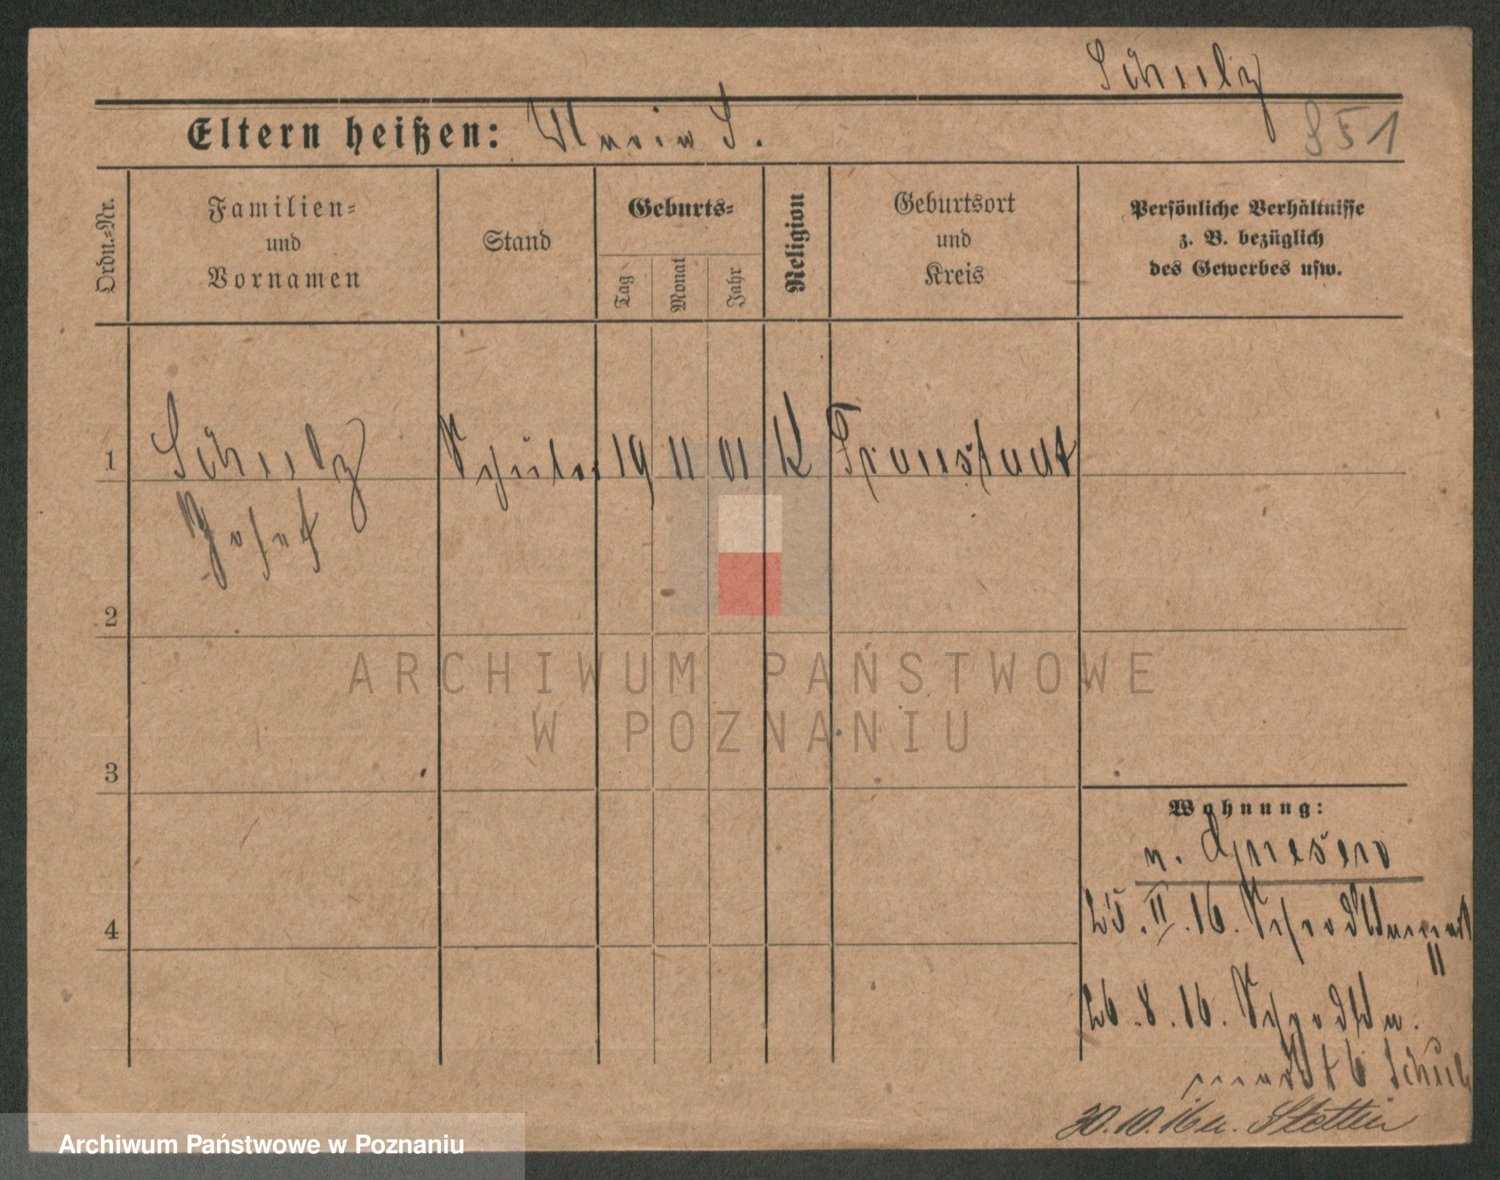 Schulz
Eltern heißen: Maria S.
951
Ordn.-Nr.
Familien-
und
Vornamen
Stand
Geburts-
Tag
Monat
Jahr
Religion
Geburtsort
und
Kreis
Persönliche Verhältnisse
z. B. bezüglich
des Gewerbes usw.
1 Schulz Schüler 19 11 01 K Fraustadt
Josef
2
3
4
Wohnung:
n. Gnesen
25. II. 16.
26. 8. 16.
Schulz
30.10.16 n. Stettin
ARCHIWUM PAŃSTWOWE
W POZNANIU
Archiwum Państwowe w Poznaniu